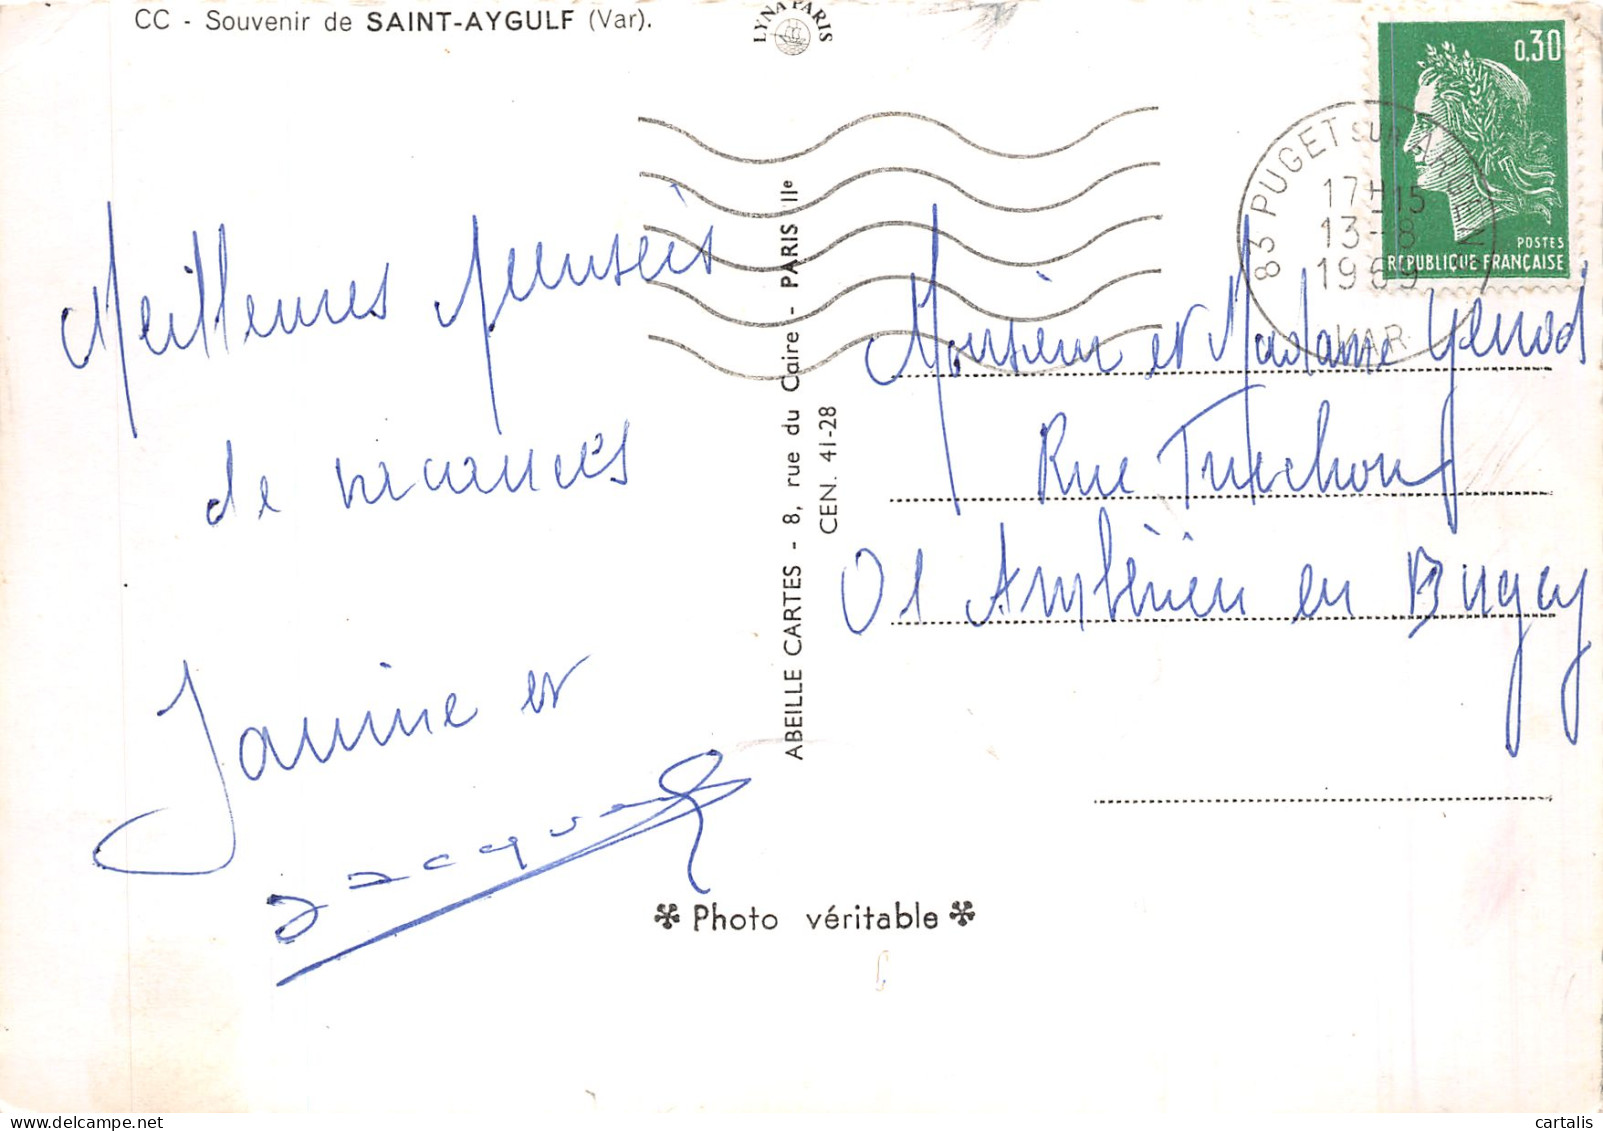 CC - Souvenir de SAINT-AYGULF (Var).
LYNA PARIS
0,30
POSTES
REPUBLIQUE FRANÇAISE
83 PUGET SUR ARGENS
17H15
13-8
1969
VAR
Meilleures pensées
de vacances
Janine et
Jacques
ABEILLE CARTES - 8, rue du Caire - PARIS IIe
CEN. 41-28
Monsieur et Madame
Rue
01 Ambérieu en Bugey
Photo véritable
cartalis
delcampe.net